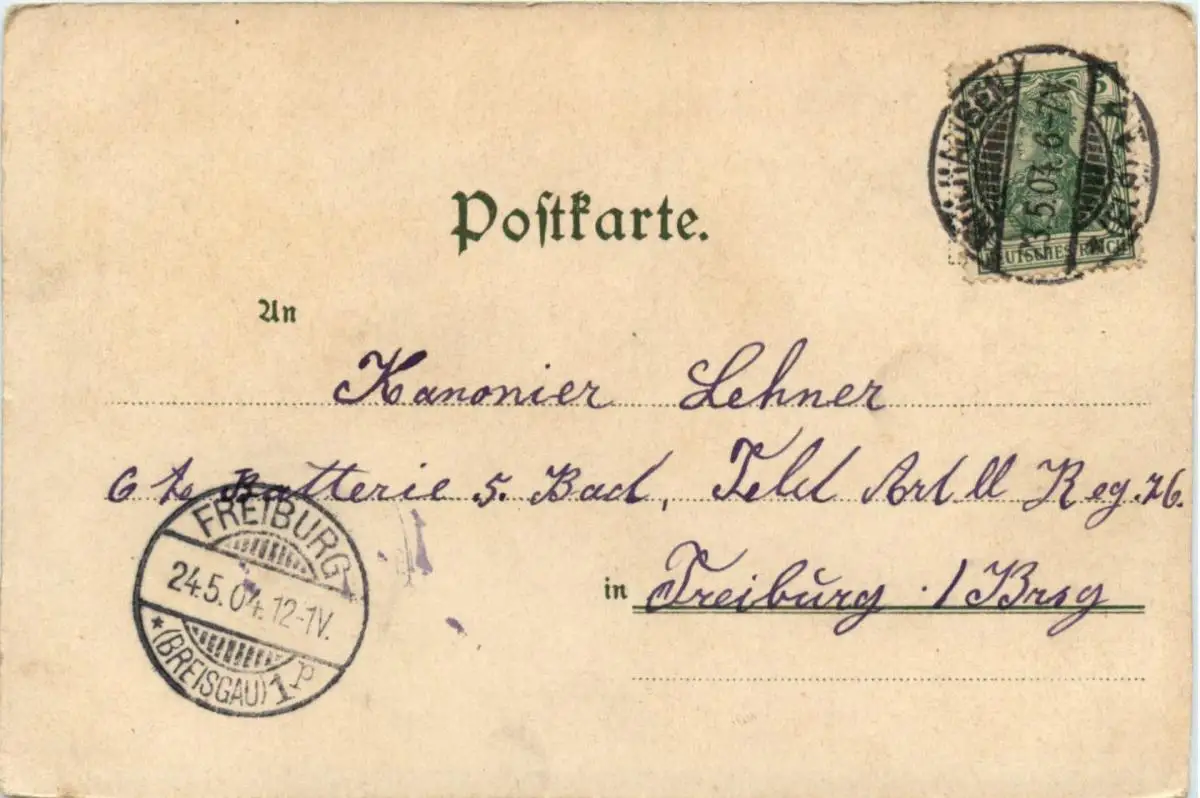 Postkarte.
5
DEUTSCHES REICH
5.04. 6-7V.
An
Kanonier Lehner
6 te Batterie 5. Bad, Feld Artll Reg. 76.
in Freiburg . / Brsg
FREIBURG
24.5.04. 12-1V.
* (BREISGAU) 1 P